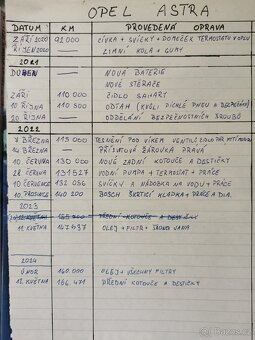 OPEL ASTRA
DATUM KM PROVEDENÁ OPRAVA
ZÁŘÍ 2020 92000 CÍVKA + SVÍČKY + DOMEČEK TERMOSTATU
ŘÍJEN 2020 — ZIMNÍ KOLA + GUMY
2021
DUBEN — NOVÁ BATERIE
— NOVÉ STĚRAČE
ZÁŘÍ 110 000 ČIDLO
10 ŘÍJNA 110 500 ODTAH (KVŮLI PÍCHLÉ PNEU
20 ŘÍJNA — ODDĚLÁNÍ BEZPEČNOSTNÍCH ŠROUBŮ
2022
7 BŘEZNA 115 000 TĚSNĚNÍ POD VÍKEM VENTILŮ
14 BŘEZNA — ŽÁROVKA PRAVÁ
10 ČERVNA 130 000 NOVÉ ZADNÍ KOTOUČE A DESTIČKY
28. ČERVNA 131527 VODNÍ PUMPA + TERMOSTAT + PRÁCE
10 ČERVENCE 132 056 SVÍČKY A NÁDOBKA NA VODU + PRÁCE
10 PROSINCE 140 200 BOSCH ŠKRTICÍ KLAPKA + PRÁCE A DIA.
2023
PŘEDNÍ KOTOUČE A DESTIČKY
11. KVĚTNA 147837 OLEJ + FILTR
2024
ÚNOR 160.000 OLEJ + VŠECHNY FILTRY
12. KVĚTNA 166 471 PŘEDNÍ KOTOUČE A DESTIČKY